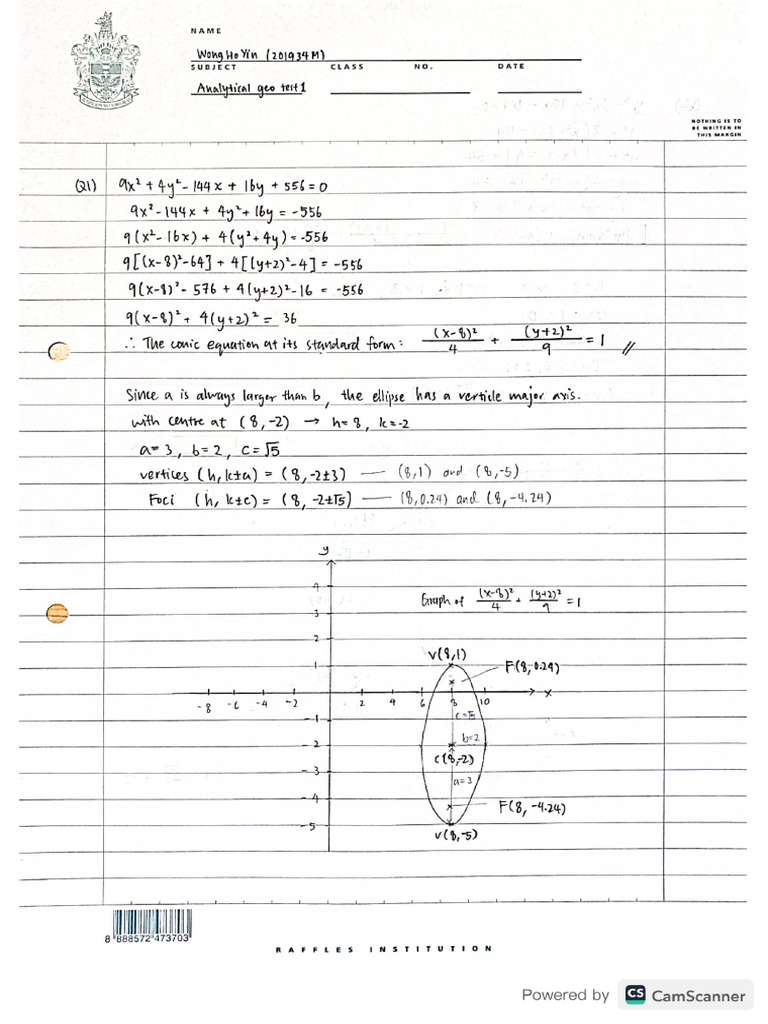 NAME
Wong Ho Yin (201934M)
SUBJECT CLASS NO. DATE
Analytical geo test 1
NOTHING IS TO
BE WRITTEN IN
THIS MARGIN
Q1) 9x² + 4y² - 144x + 16y + 556 = 0
9x² - 144x + 4y² + 16y = -556
9(x² - 16x) + 4(y² + 4y) = -556
9[(x-8)² - 64] + 4[(y+2)² - 4] = -556
9(x-8)² - 576 + 4(y+2)² - 16 = -556
9(x-8)² + 4(y+2)² = 36
∴ The conic equation at its standard form: (x-8)²/4 + (y+2)²/9 = 1 //
Since a is always larger than b, the ellipse has a verticle major axis.
with centre at (8,-2) → h=8, k=-2
a=3, b=2, c=√5
vertices (h, k±a) = (8, -2±3) — (8,1) and (8,-5)
Foci (h, k±c) = (8, -2±√5) — (8,0.24) and (8,-4.24)
y
4
Graph of (x-8)²/4 + (y+2)²/9 = 1
3
2
V(8,1)
1
F(8,0.24)
-8 -6 -4 -2 2 4 6 8 10 x
c=√5
-1
b=2
-2
C(8,-2)
-3
a=3
-4
F(8,-4.24)
-5
V(8,-5)
8 888572 473703
RAFFLES INSTITUTION
Powered by CS CamScanner